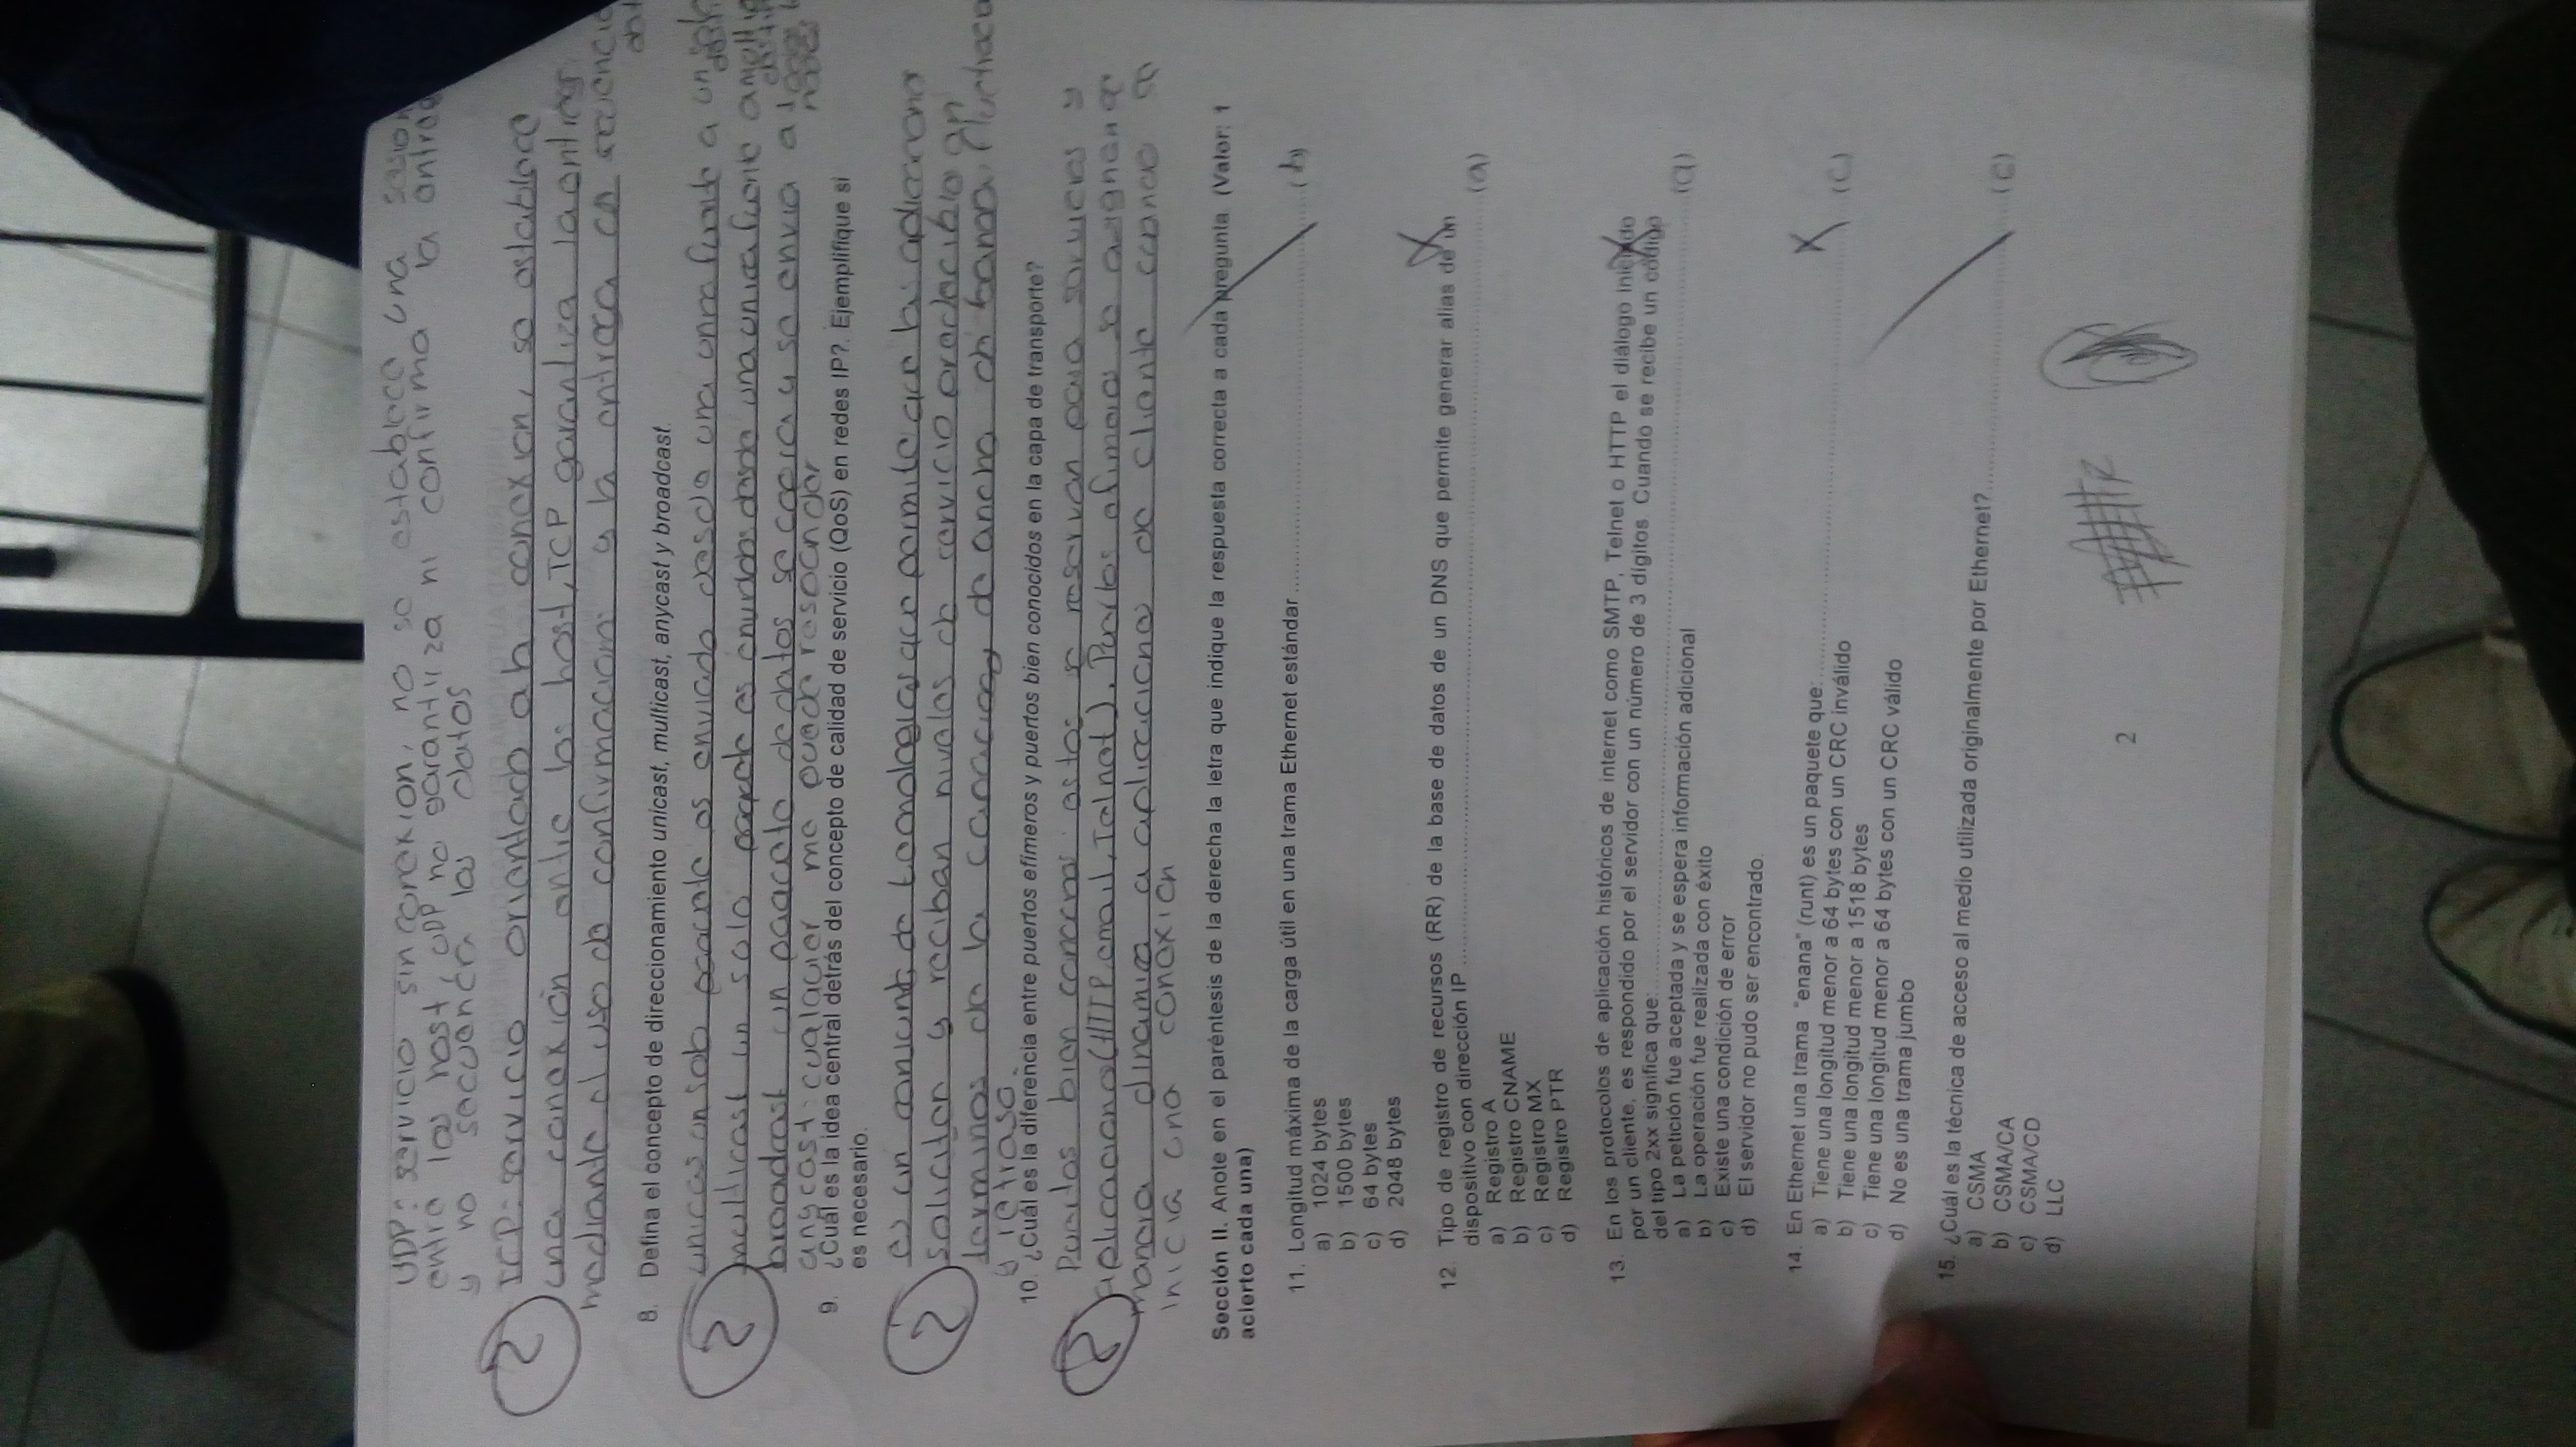 UDP: servicio sin conexion, no se establece una sesion
entre los host, UDP no garantiiza ni confirma la
y no secuencia los datos
2
TCP: servicio orientado a la conexion, se establece
una conexión entre los host, TCP garantiza la
mediante el uso de confirmacion y la entrega en
8. Defina el concepto de direccionamiento unicast, multicast, anycast y broadcast.
2
un solo paquete es enviado desde una unica fuente a un
multicast un solo paquete es enviado desde una unica fuente a
broadcast un paquete de datos se copia y se envia a
anycast: cualquier me puede responder
9. ¿Cuál es la idea central detrás del concepto de calidad de servicio (QoS) en redes IP?. Ejemplifique si
es necesario.
2
es un conjunto de tecnologias que permite que las aplicaciones
soliciten y reciban niveles de servicio predecible en
terminos de la capacidad de ancho de banda,
y retraso.
10. ¿Cuál es la diferencia entre puertos efímeros y puertos bien conocidos en la capa de transporte?
2
Puertos bien estos se reservan para servicios y
aplicaciones (HTTP, email, Telnet). Puertos efimeros se asignan de
manera dinamica a aplicaciones de cliente cuando se
inicia una conexion
Sección II. Anote en el paréntesis de la derecha la letra que indique la respuesta correcta a cada pregunta. (Valor: 1
acierto cada una)
11. Longitud máxima de la carga útil en una trama Ethernet estándar (b)
a) 1024 bytes
b) 1500 bytes
c) 64 bytes
d) 2048 bytes
12. Tipo de registro de recursos (RR) de la base de datos de un DNS que permite generar alias de un
dispositivo con dirección IP (a)
a) Registro A
b) Registro CNAME
c) Registro MX
d) Registro PTR
13. En los protocolos de aplicación históricos de internet como SMTP, Telnet o HTTP el diálogo iniciado
por un cliente, es respondido por el servidor con un número de 3 dígitos. Cuando se recibe un código
del tipo 2xx significa que: (a)
a) La petición fue aceptada y se espera información adicional
b) La operación fue realizada con éxito
c) Existe una condición de error
d) El servidor no pudo ser encontrado.
14. En Ethernet una trama “enana” (runt) es un paquete que: (C)
a) Tiene una longitud menor a 64 bytes con un CRC inválido
b) Tiene una longitud menor a 1518 bytes
c) Tiene una longitud menor a 64 bytes con un CRC válido
d) No es una trama jumbo
15. ¿Cuál es la técnica de acceso al medio utilizada originalmente por Ethernet? (C)
a) CSMA
b) CSMA/CA
c) CSMA/CD
d) LLC
2